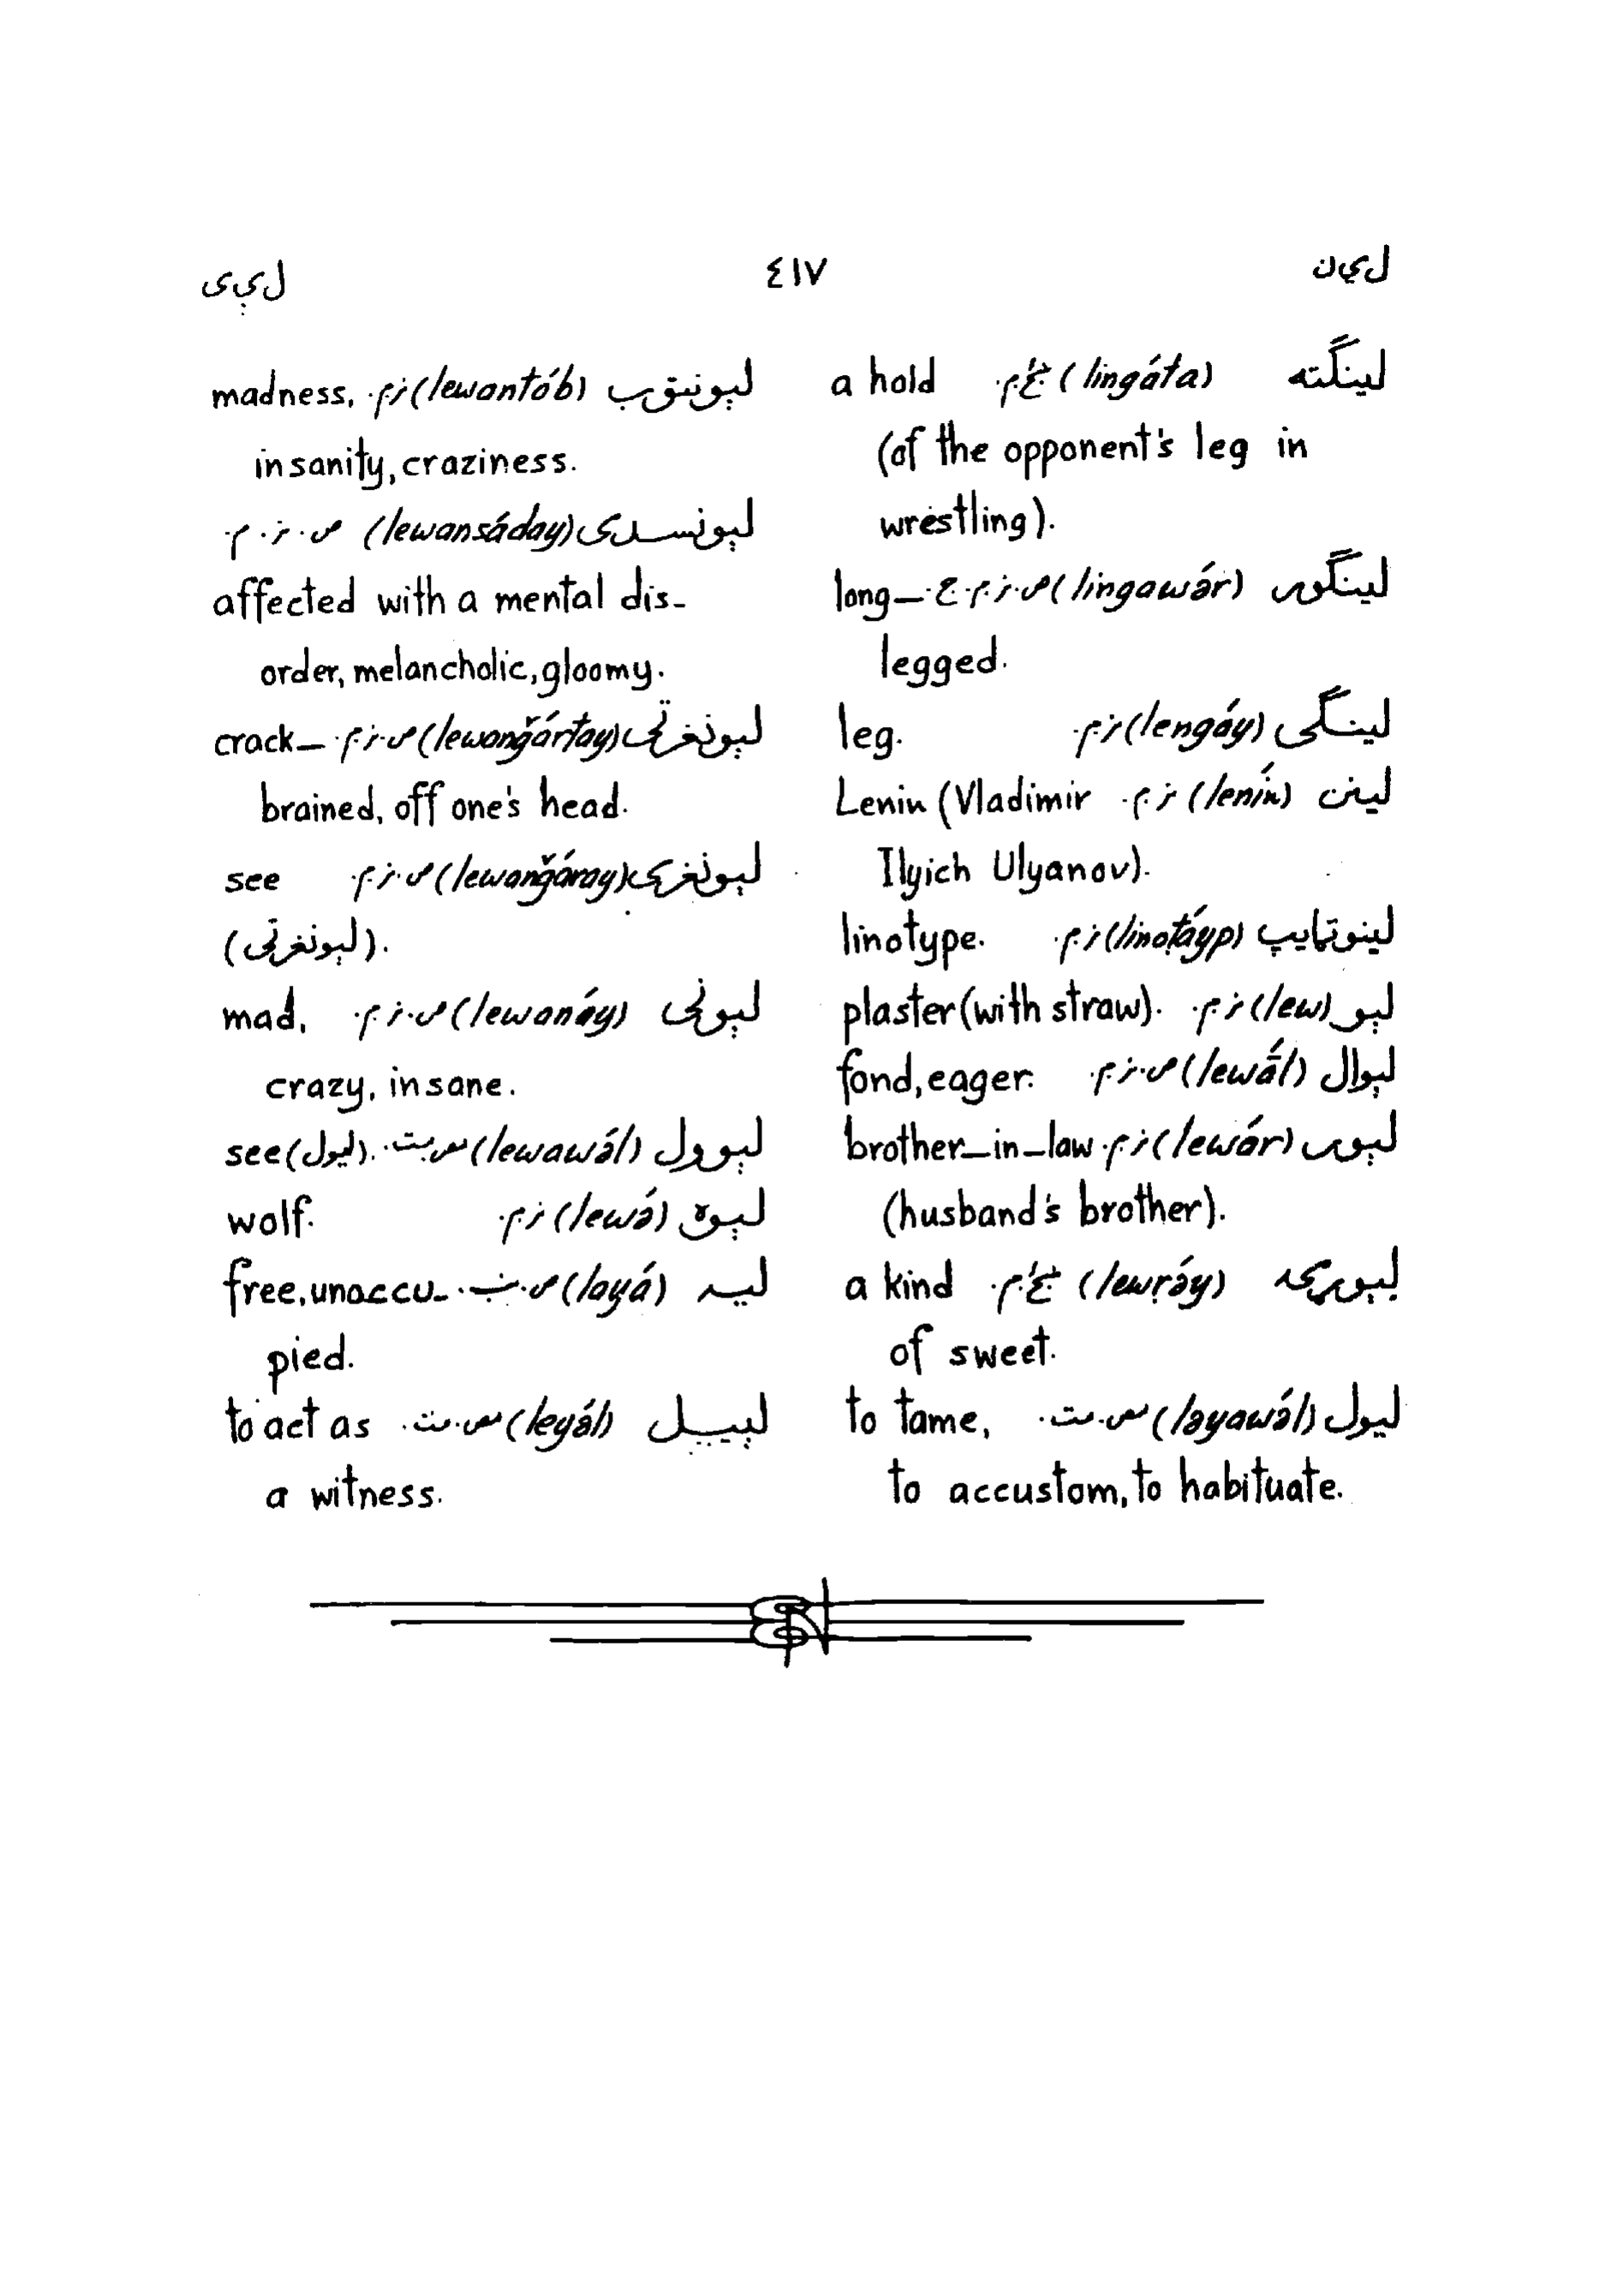 لین ٤١٧ لېی
لینګته (lingáta) غ.م. a hold
(of the opponent's leg in
wrestling).
لینګور (lingawə́r) ص.ز.م.ج. long_
legged.
لینګی (lengáy) ز.م. leg.
لینن (lenín) ز.م. Lenin (Vladimir
Ilyich Ulyanov).
لینوټایپ (linoṭáyp) ز.م. linotype.
لېو (lew) ز.م. plaster (with straw).
لېوال (lewā́l) ص.ز.م. fond, eager.
لېور (lewár) ز.م. brother_in_law
(husband's brother).
لېوړۍ (lewṛə́y) غ.م. a kind
of sweet.
لیول (layawə́l) مص.مت. to tame,
to accustom, to habituate.
لېونتوب (lewantób) ز.م. madness,
insanity, craziness.
لېونسدی (lewansáday) ص.ز.م.
affected with a mental dis_
order, melancholic, gloomy.
لېونغړتی (lewanğártay) ص.ز.م. crack_
brained, off one's head.
لېونغړی (lewanğáray) ص.ز.م. see
(لېونغړتی).
لېونی (lewanáy) ص.ز.م. mad,
crazy, insane.
لېوول (lewawə́l) مص.مت. see (لیول).
لېوه (lewə́) ز.م. wolf.
لیه (layá) ص.ث. free, unoccu_
pied.
لېیل (leyə́l) مص.مت. to act as
a witness.